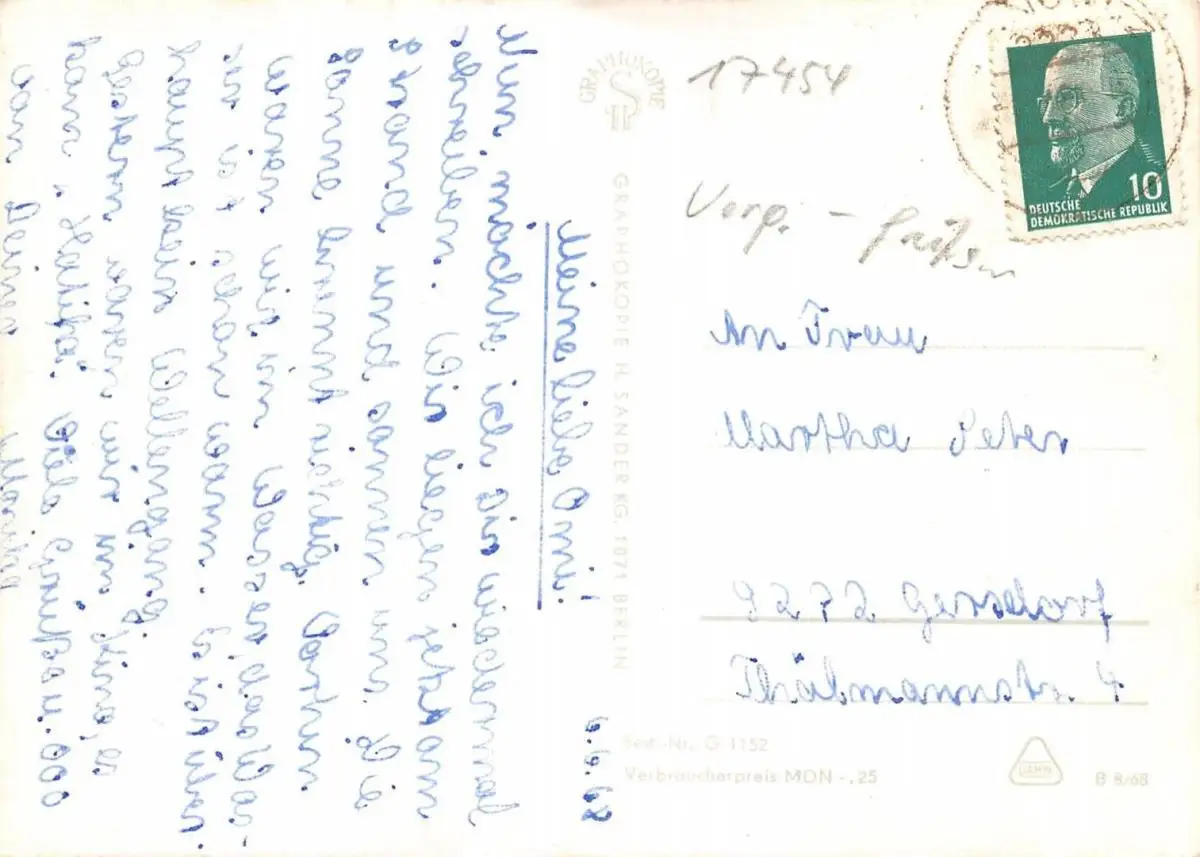 6.6.68
Meine liebe Omi!
Nun möchte ich Dir wiedermal
schreiben. Wir liegen jetzt am
Strand und sonnen uns. Die
Sonne brennt richtig. Vorhin
waren wir im Wasser, das Was-
ser ist schon warm. Es ist über
haupt kein Wellengang.
Gestern waren wir im Kino, es
kam "". Viele Grüße u. 000
von Deiner
17454
Verp. -
An Frau
Martha Peter
9272 Gersdorf
Thälmannstr. 4
10
DEUTSCHE
DEMOKRATISCHE REPUBLIK
GRAPHOKOPIE
GRAPHOKOPIE H. SANDER KG, 1071 BERLIN
Best.-Nr. G 1152
Verbraucherpreis MDN -,25
B 8/68